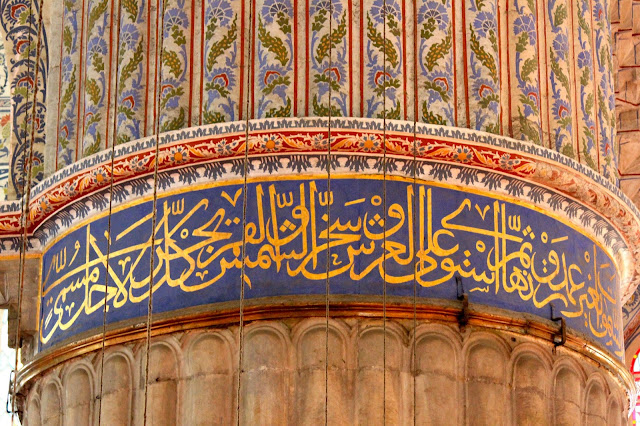 بغير عمد ترونها ثم استوى على العرش وسخر الشمس والقمر كل يجري لاجل مسمى